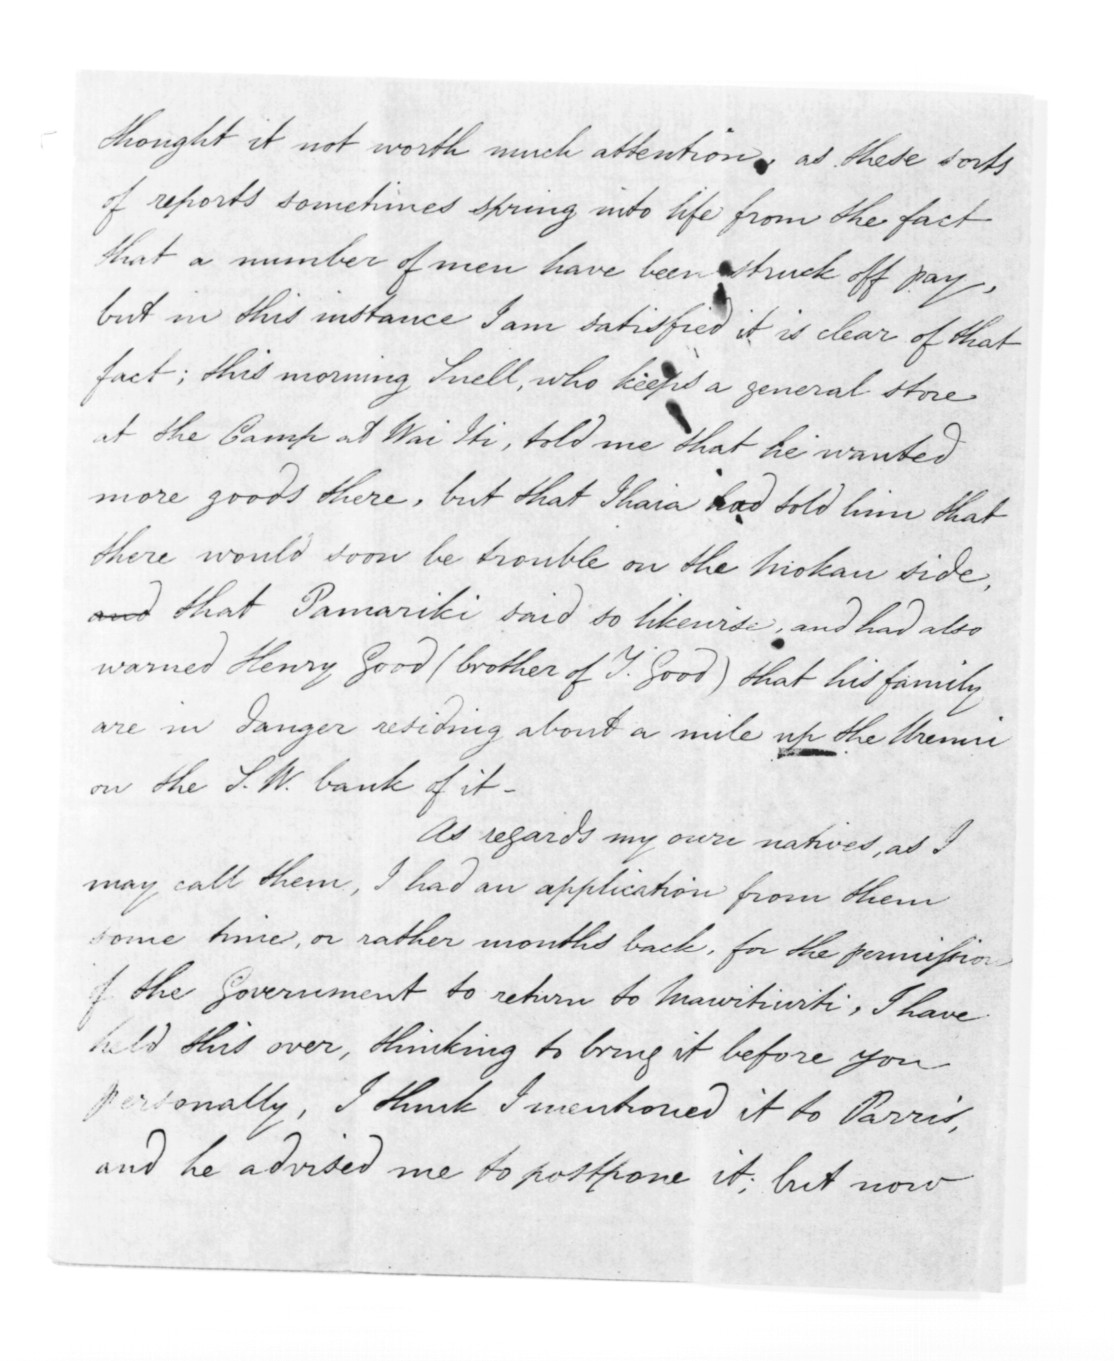 thought it not worth much attention, as these sorts
of reports sometimes spring into life from the fact
that a number of men have been struck off pay,
but in this instance I am satisfied it is clear of that
fact; this morning Snell, who keeps a general store
at the Camp at Wai Iti, told me that he wanted
more goods there, but that Ihaia had told him that
there would soon be trouble on the Mokau side,
and that Pamariki said so likewise, and had also
warned Henry Good (brother of T. Good) that his family
are in danger residing about a mile up the Urenui
on the S.W. bank of it -
As regards my own natives, as I
may call them, I had an application from them
some time, or rather months back, for the permission
of the Government to return to Mawitiwiti, I have
held this over, thinking to bring it before you
personally, I think I mentioned it to Parris,
and he advised me to postpone it; but now